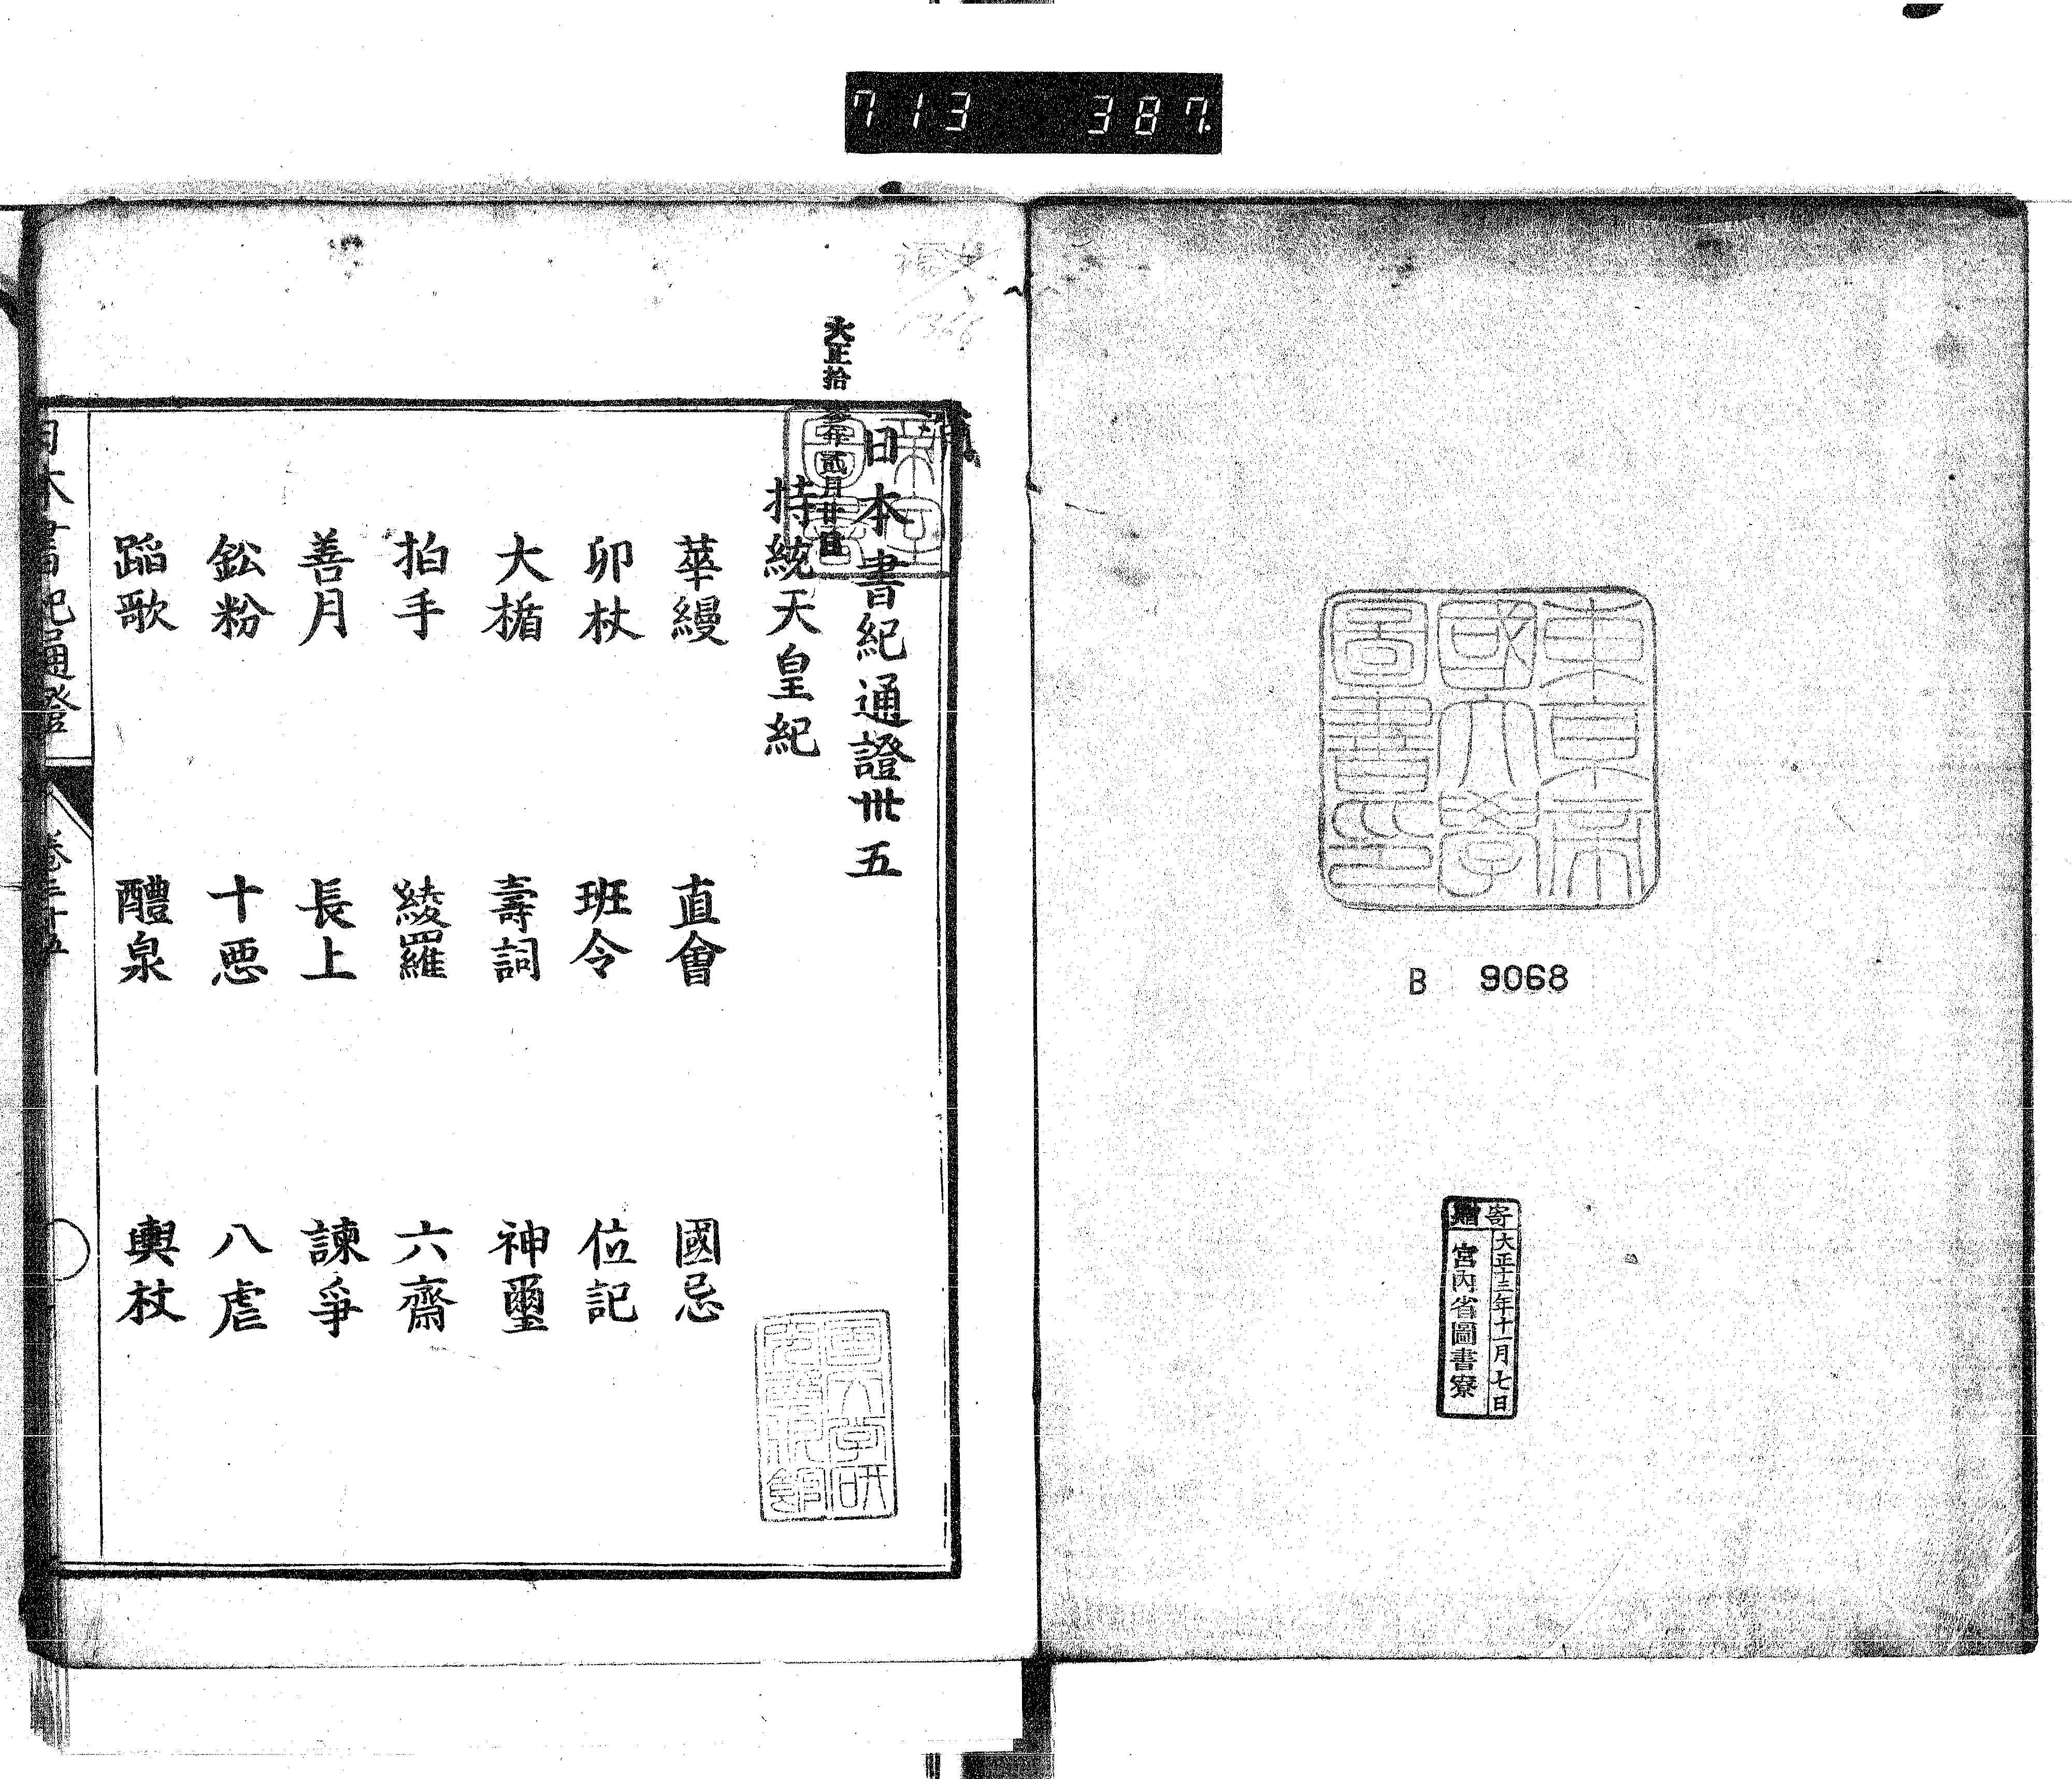 713 387.
東京帝
國大學
圖書之印
B 9068
寄贈
大正十三年十一月七日
宮內省圖書寮
帝室
圖書
大正拾參年貳月廿
日本書紀通證卅五
持統天皇紀
華縵 直會 國忌
卯杖 班令 位記
大楯 壽詞 神璽
拍手 綾羅 六齋
善月 長上 諫爭
鈆粉 十惡 八虐
蹈歌 醴泉 輿杖
日本書紀通證 卷三十五